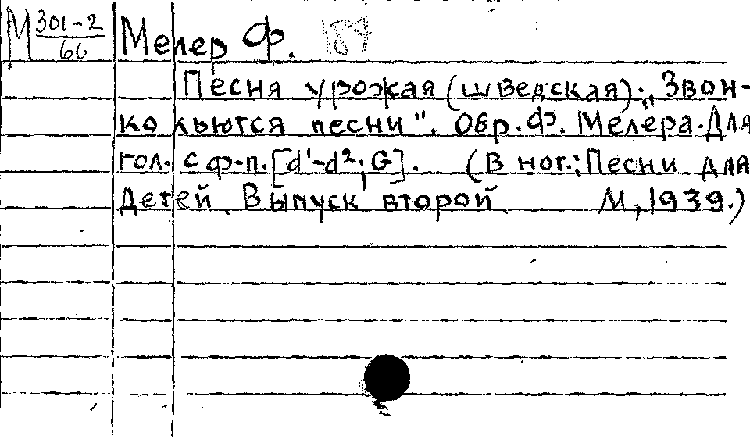 М 301-2/66 Мелер Ф. 189
Песня урожая (шведская). „Звон-
ко льются песни". Обр. Ф. Мелера. Для
гол. с ф-п. [d¹-d²; G]. (В ног.: Песни для
детей. Выпуск второй М, 1939.)